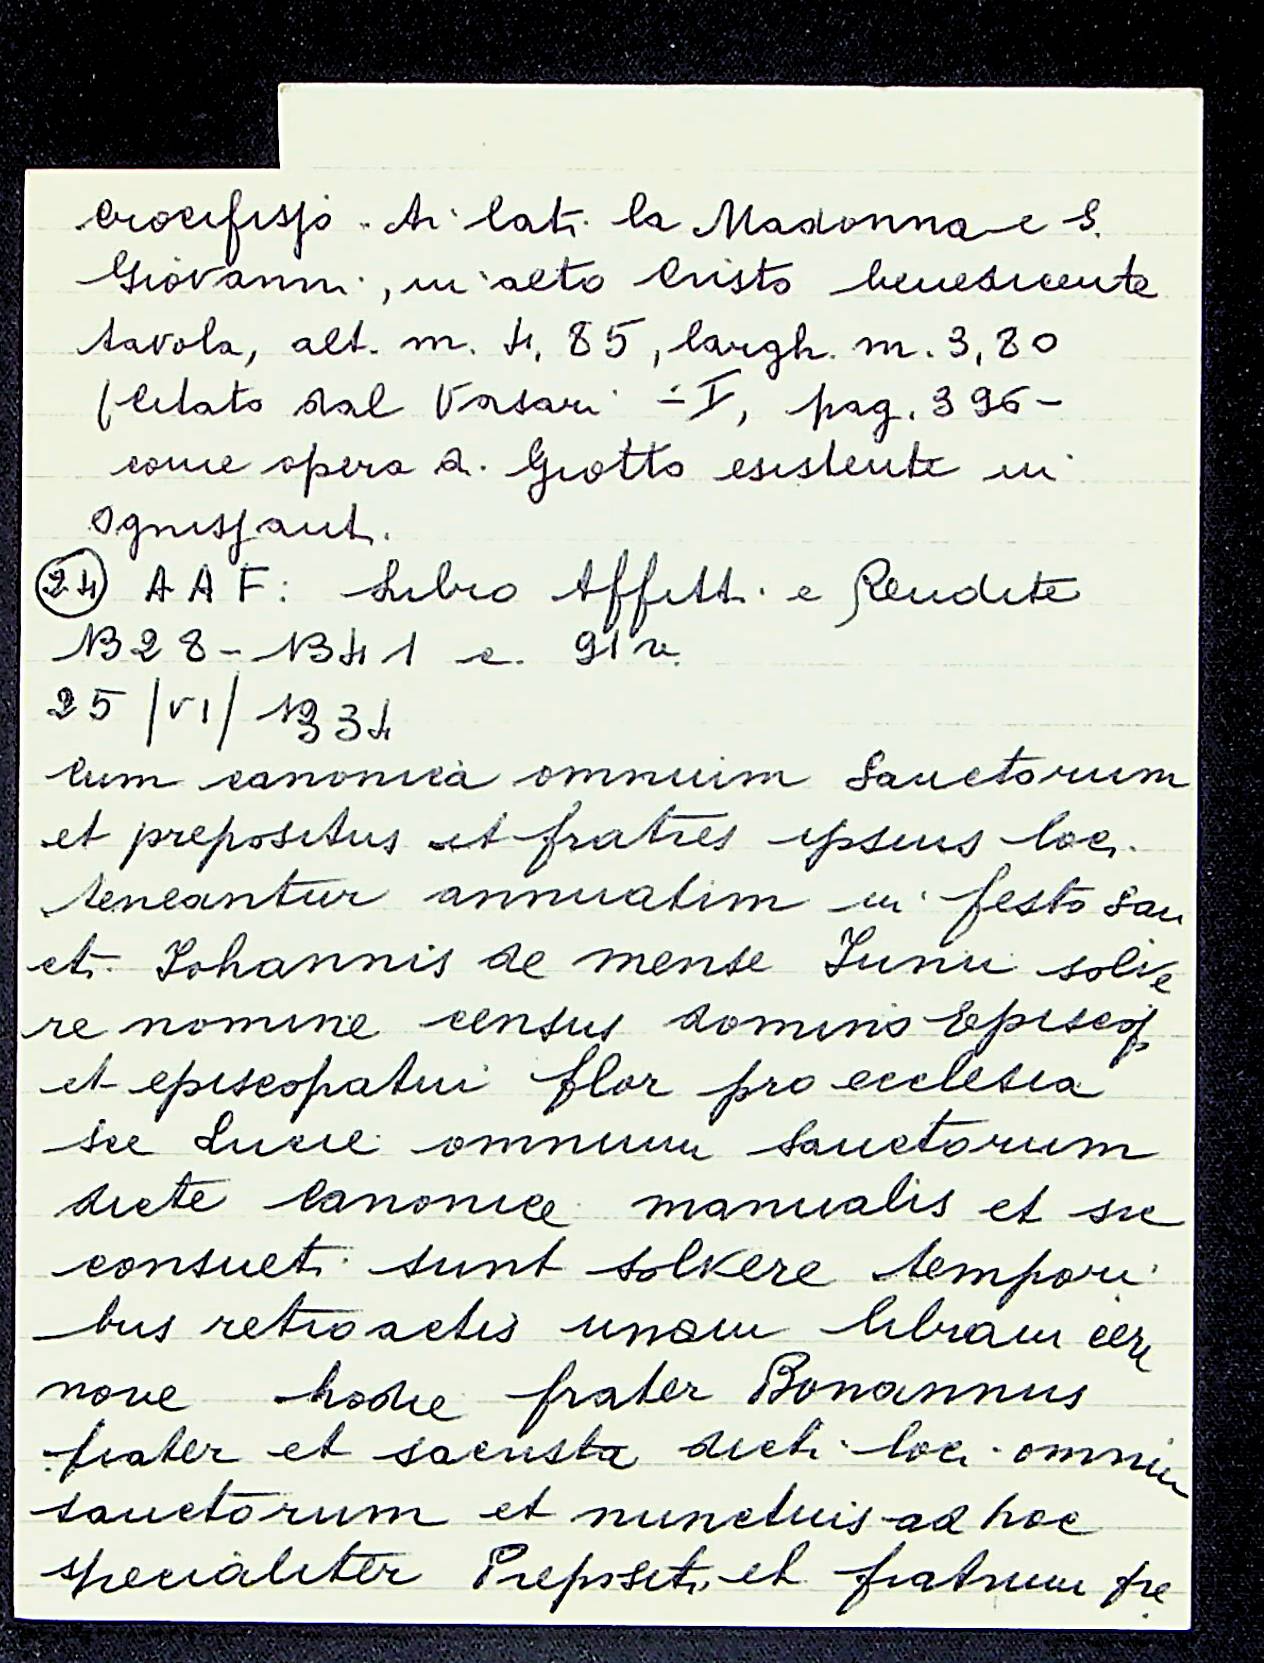 Crocifisso. Ai lati la Madonna e S.
Giovanni, in alto Cristo benedicente
tavola, alt. m. 4,85, largh. m. 3,80
(Citato dal Vasari - I, pag. 396 -
come opera di Giotto esistente in
Ognissanti.
(24) AAF: Libro Affitti e Rendite
1328-1341 c. 91v.
25/VI/1334
Cum canonica omnium Sanctorum
et prepositus et fratres ipsius loci
teneantur annuatim in festo San
cti Iohannis de mense Iunii solve
re nomine census domino Episcop
et episcopatui flor pro ecclesia
sce Lucie omnium Sanctorum
dicte Canonice manualis et sic
consueti sunt solvere tempori
bus retroactis unam libram cere
nove hodie frater Bonannus
frater et sacrista dicti loci omnium
sanctorum et nunctuis ad hoc
specialiter Prepositi et fratrum pre